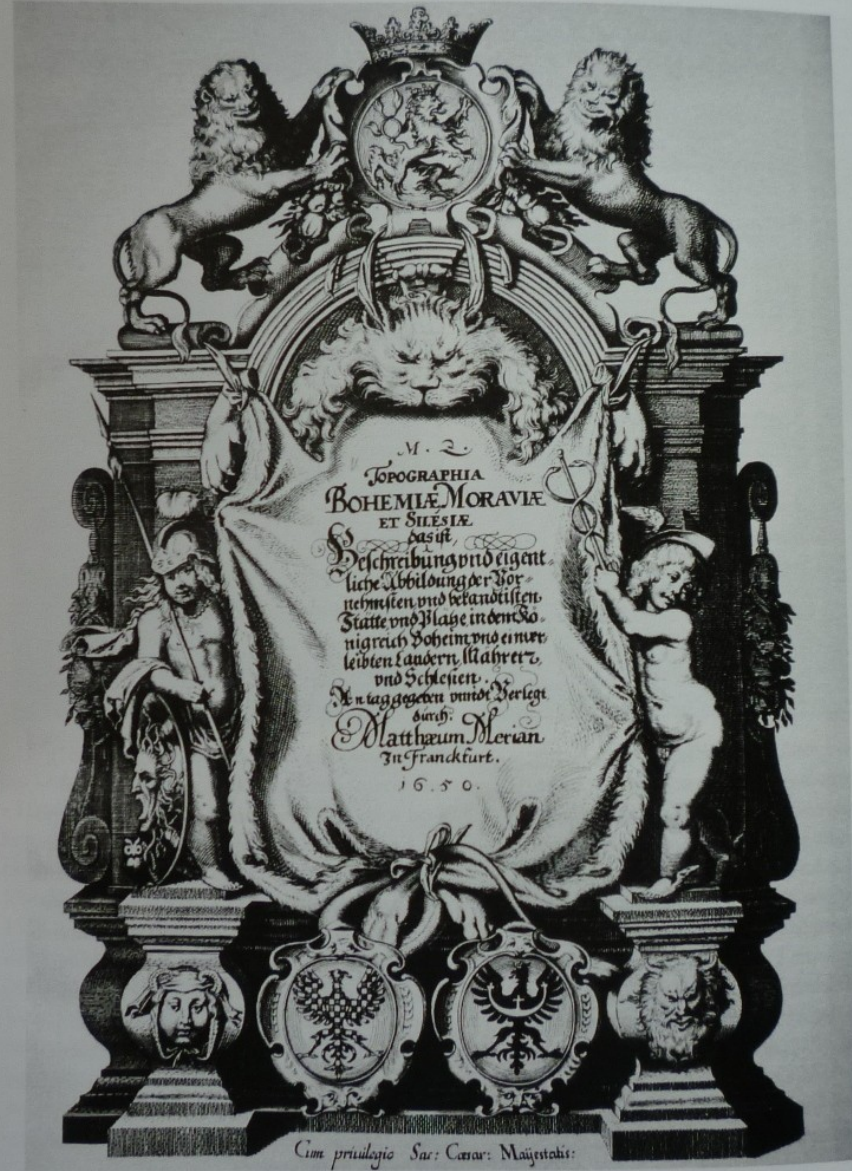 M. Z.
TOPOGRAPHIA
BOHEMIÆ MORAVIÆ
ET SILESIÆ
das ist,
Beschreibung vnd eigent-
liche Abbildung der Vor-
nehmsten vnd bekandtisten
Stätte vnd Plätze in dem Kö-
nigreich Boheim vnd einver-
leibten Landern, Mähren,
vnd Schlesien.
An tag gegeben vnndt Verlegt
durch.
Matthæum Merian
In Franckfurt.
1650.
Cum priuilegio Sac: Cæsar: Maÿestatis: